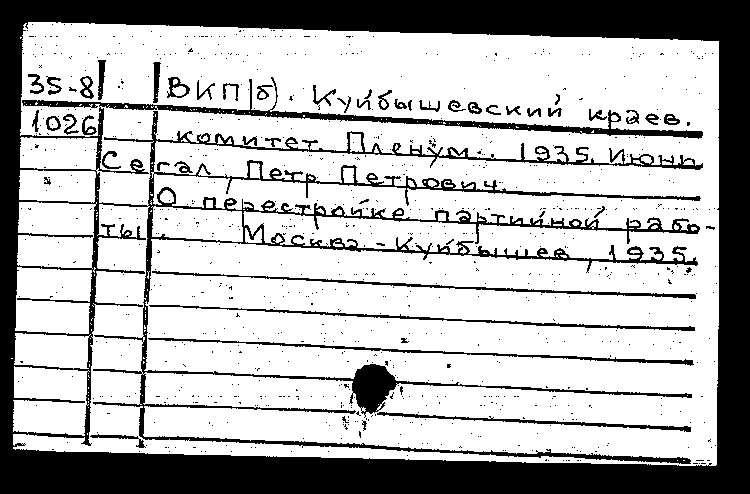 35-8 ВКП(б). Куйбышевский краев.
1026 комитет Пленум. 1935. Июнь
Сегал, Петр Петрович.
О перестройке партийной рабо-
ты. Москва-Куйбышев, 1935.